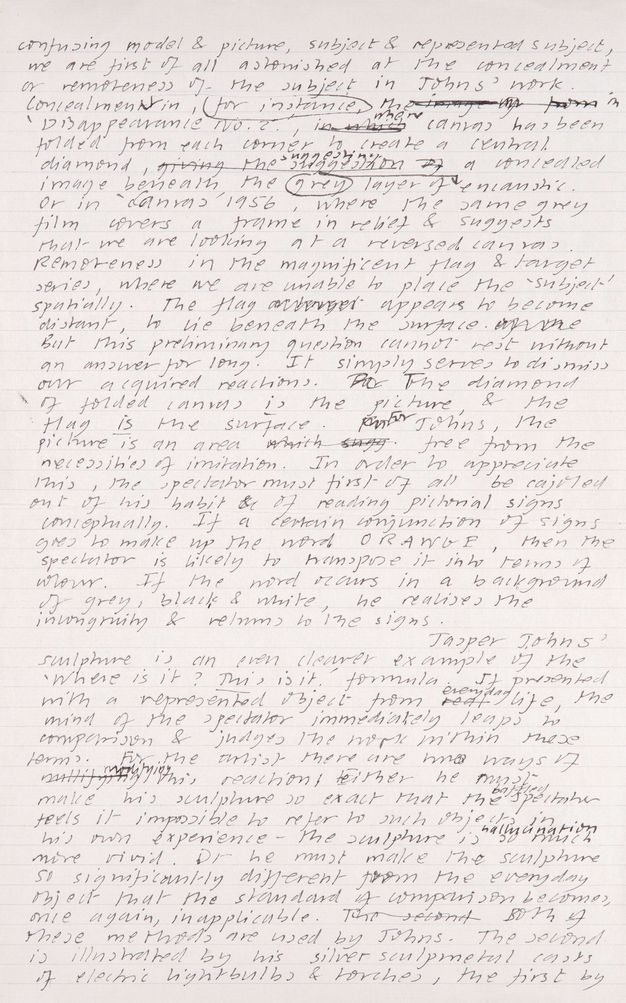 confusing model & picture, subject & represented subject,
we are first of all astonished at the concealment
or remoteness of the subject in Johns' work.
Concealment in, for instance, the image from in
'Disappearance No.2', in which where canvas has been
folded from each corner to create a central
diamond, giving the suggestion of suggesting a concealed
image beneath the grey layer of encaustic.
Or in 'Canvas' 1956, where the same grey
film covers a frame in relief & suggests
that we are looking at a reversed canvas.
Remoteness in the magnificent flag & target
series, where we are unable to place the 'subject'
spatially. The flag appears to become
distant, to lie beneath the surface.
But this preliminary question cannot rest without
an answer for long. It simply serves to dismiss
our acquired reactions. The diamond
of folded canvas is the picture, & the
flag is the surface. For Johns, the
picture is an area which sugg. free from the
necessities of imitation. In order to appreciate
this, the spectator must first of all be cajoled
out of his habit of reading pictorial signs
conceptually. If a certain conjunction of signs
goes to make up the word ORANGE, then the
spectator is likely to transpose it into terms of
colour. If the word occurs in a background
of grey, black & white, he realises the
incongruity & returns to the signs.
Jasper Johns'
sculpture is an even clearer example of the
'Where is it? This is it.' formula. If presented
with a represented object from real everyday life, the
mind of the spectator immediately leaps to
comparison & judges the work within these
terms. For the artist there are two ways of
nullifying this reaction. Either he must
make his sculpture so exact that the baffled spectator
feels it impossible to refer to such objects in
his own experience – the sculpture is so much hallucination
more vivid. Or he must make the sculpture
so significantly different from the everyday
object that the standard of comparison becomes,
once again, inapplicable. The second Both of
these methods are used by Johns. The second
is illustrated by his silver sculpmetal casts
of electric lightbulbs & torches, the first by